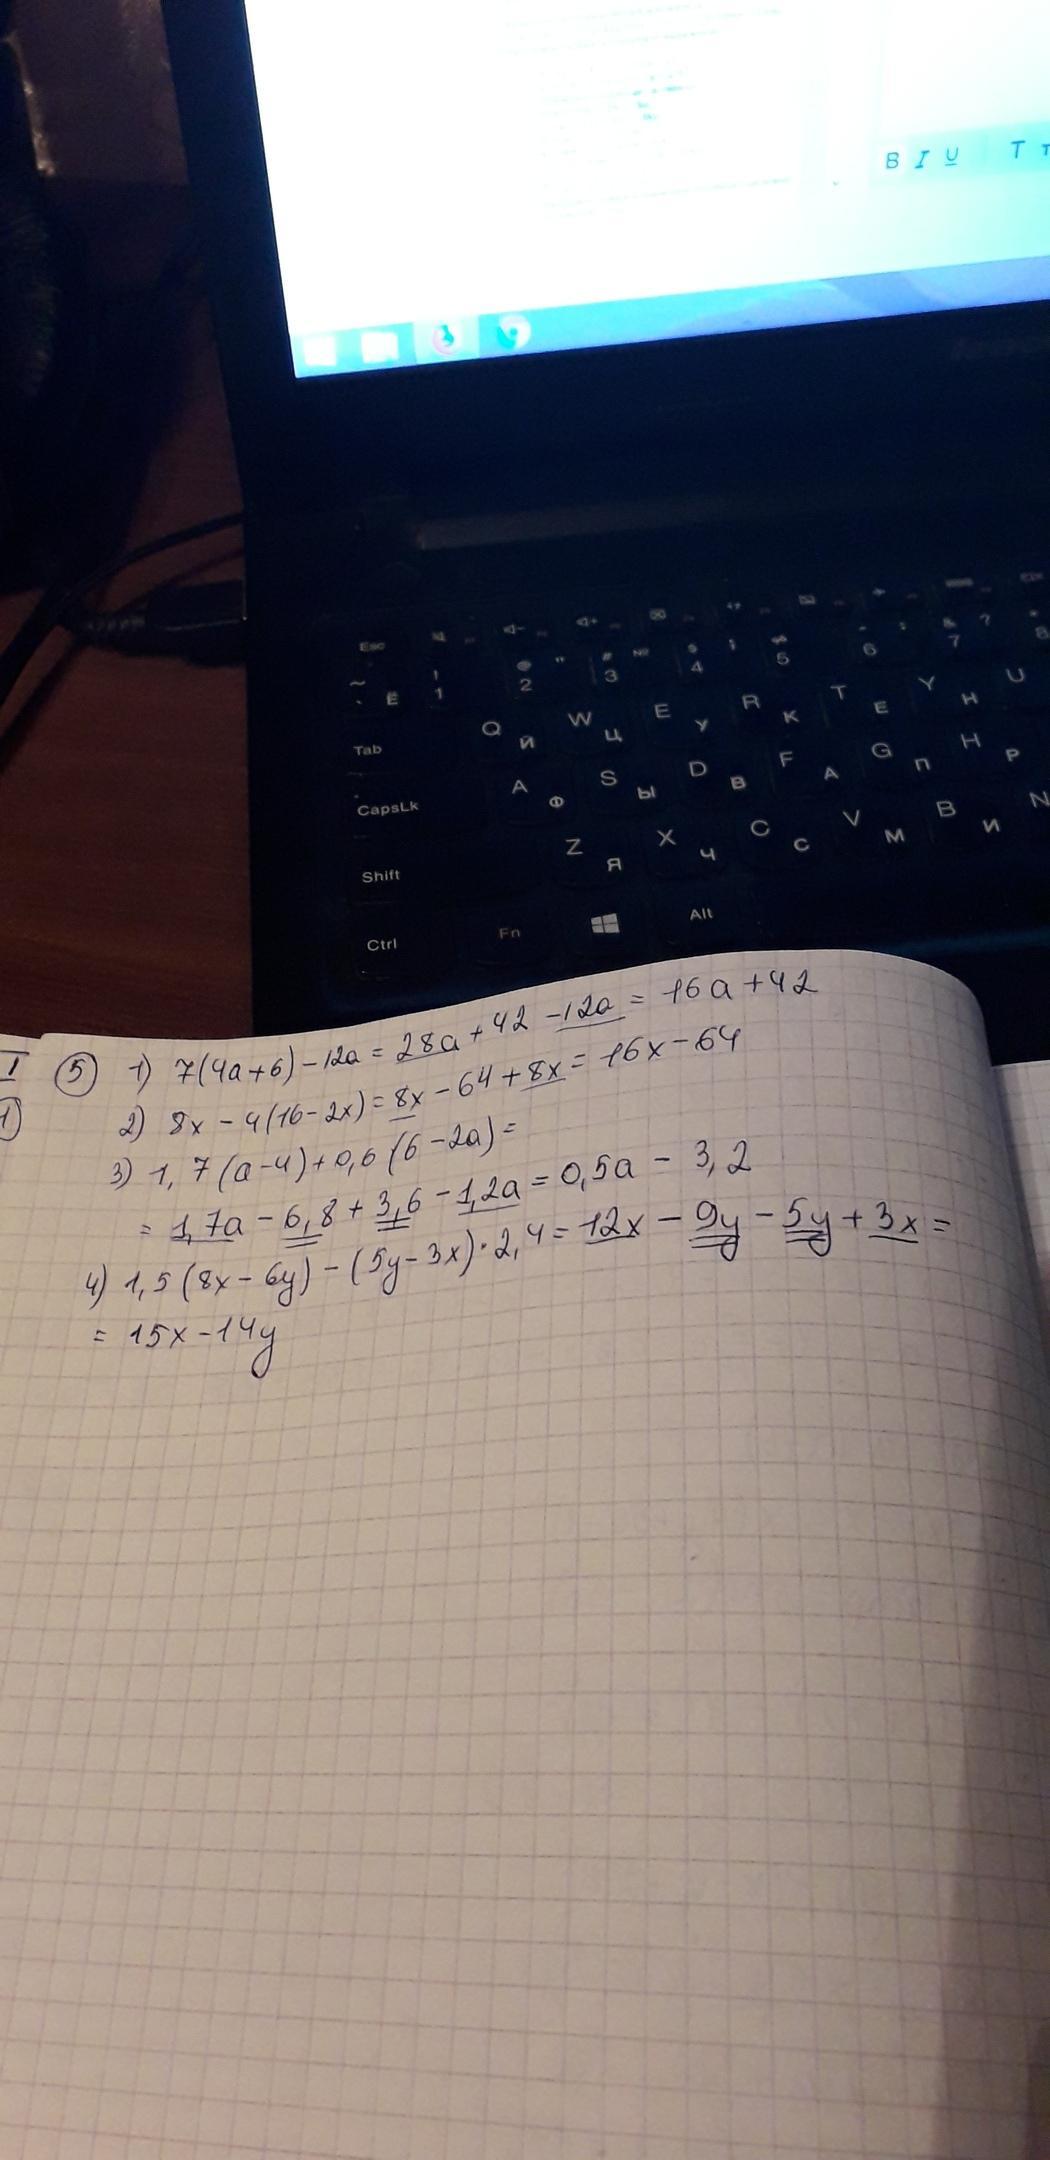 B I U T
Esc
~ ` Ё ! 1 @ " 2 # № 3 $ ; 4 5 6 : & ? 7 * 8
Tab Q Й W Ц E У R К T Е Y Н U
CapsLk A Ф S Ы D В F А G П H Р
Shift Z Я X Ч C С V М B И N
Ctrl Fn Alt
I ⑤ 1) 7(4a+6)-12a = 28a + 42 - 12a = 16a + 42
1) 2) 8x - 4(16-2x) = 8x - 64 + 8x = 16x - 64
3) 1,7(a-4)+0,6(6-2a) =
= 1,7a - 6,8 + 3,6 - 1,2a = 0,5a - 3,2
4) 1,5(8x-6y) - (5y-3x)·2,4 = 12x - 9y - 5y + 3x =
= 15x - 14y